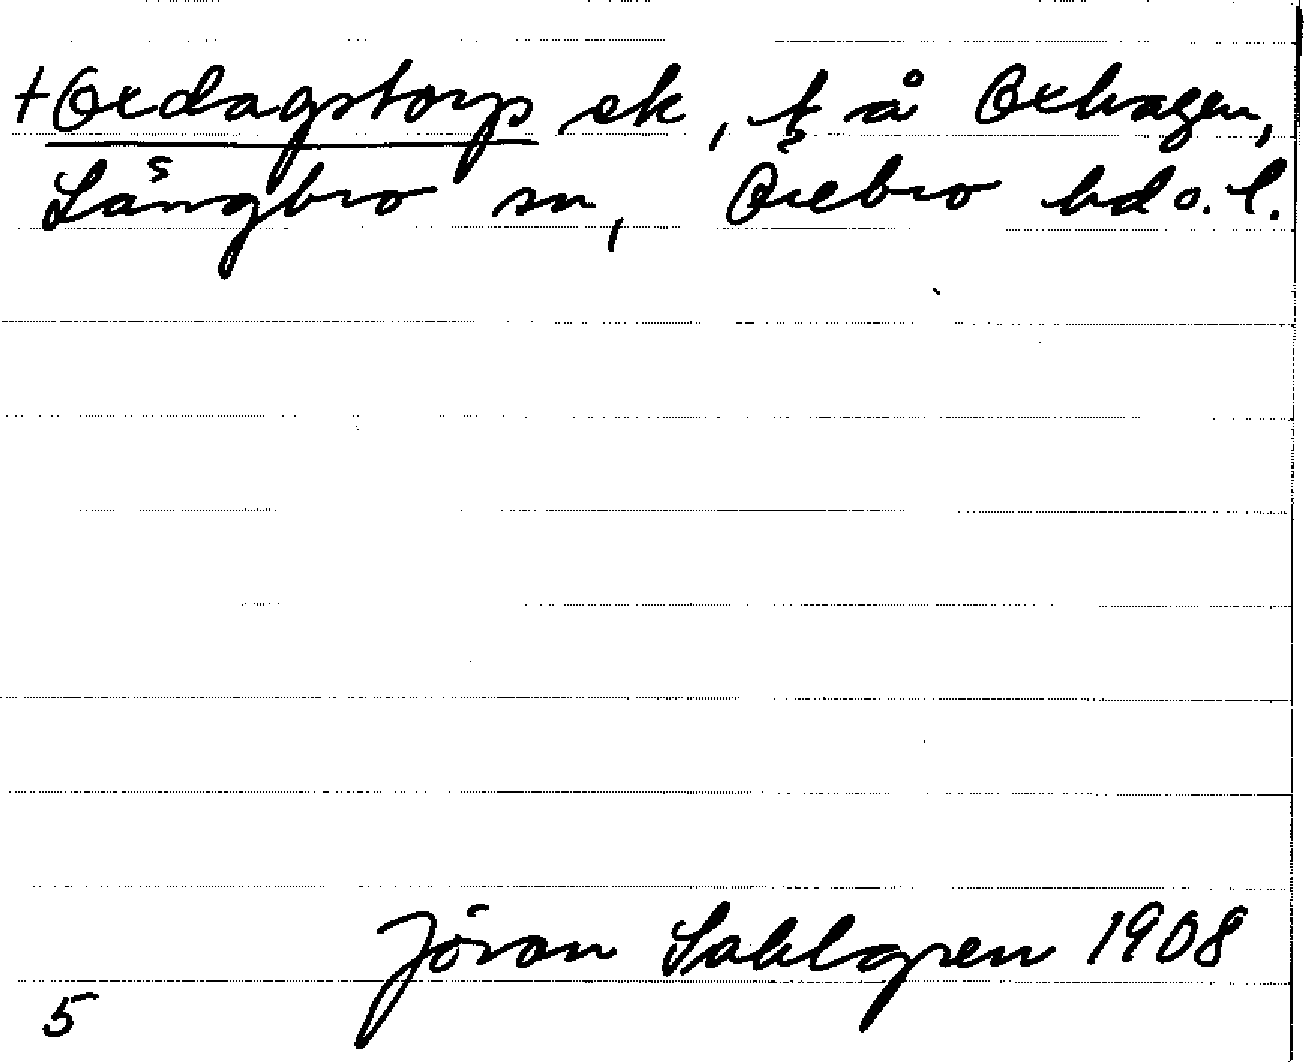 †Oxdagstorp sk, t å Oxhagen,
Långbro sn, Örebro hd o. l.
Jöran Sahlgren 1908
5